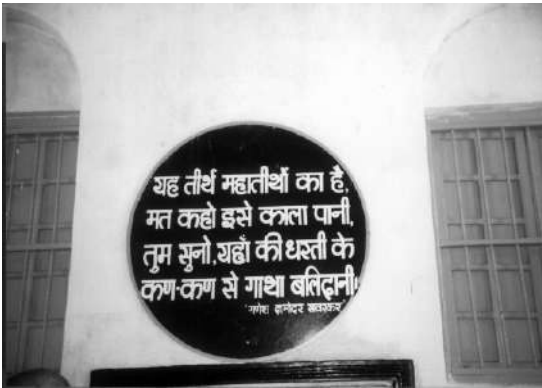 यह तीर्थ महातीर्थो का है,
मत कहो इसे काला पानी,
तुम सुनो,यहाँ की धरती के
कण-कण से गाथा बलिदानी।
'गणेश दामोदर सावरकर'